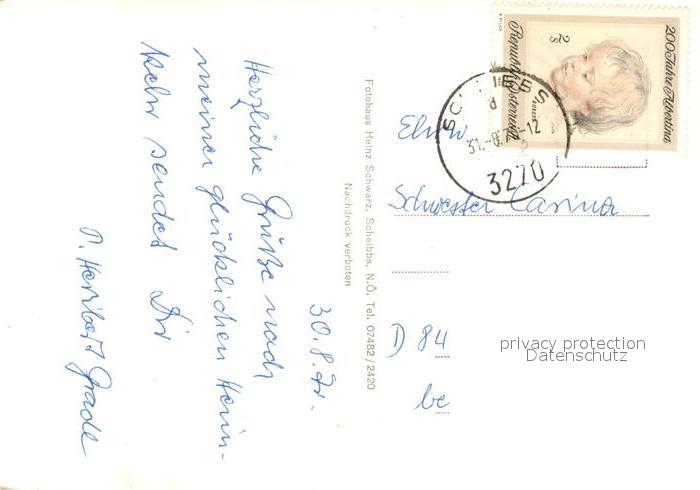 30.8.71.
Herzliche Grüße nach
meiner glücklichen Heim-
kehr sendet Dir
P. Heribert Grade
Fotohaus Heinz Schwarz, Scheibbs, N.Ö. Tel. 07482/2420
Nachdruck verboten
200 Jahre Albertina
2 S
Republik Österreich
SCHEIBBS
31.-8.71-12
3270
Ehrw
Schwester Carina
D 84
be
privacy protection
Datenschutz